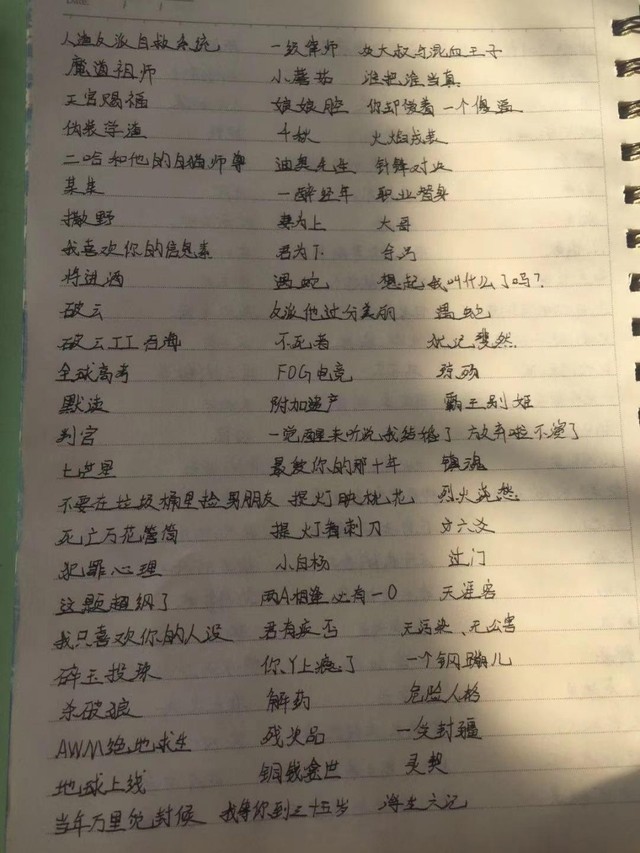 人渣反派自救系统 一级律师 女大叔与混血王子
魔道祖师 小蘑菇 谁把谁当真
天官赐福 娘娘腔 你却爱着一个傻逼
伪装学渣 千秋 火焰戎装
二哈和他的白猫师尊 迪奥先生 针锋对决
某某 一醉经年 职业替身
撒野 妻为上 大哥
我喜欢你的信息素 君为下 台风
将进酒 遇蛇 想起我叫什么了吗?
破云 反派他过分美丽 遇蛇
破云II 吞海 不死者 斐然
全球高考 FOG电竞
默读 附加遗产 霸王别姬
判官 一觉醒来听说我结婚了 放弃啦不演了
七芒星 最爱你的那十年 镇魂
不要在垃圾桶里捡男朋友 提灯映桃花 烈火浇愁
死亡万花筒 提灯看刺刀 六爻
犯罪心理 小白杨 过门
这题超纲了 两A相逢必有一O 天涯客
我只喜欢你的人设 君有疾否 无污染、无公害
碎玉投珠 你丫上瘾了 一个钢镚儿
杀破狼 解药 危险人格
AWM绝地求生 残次品 一受封疆
地球上线 铜钱龛世 灵契
当年万里觅封侯 我等你到三十五岁 浮生六记